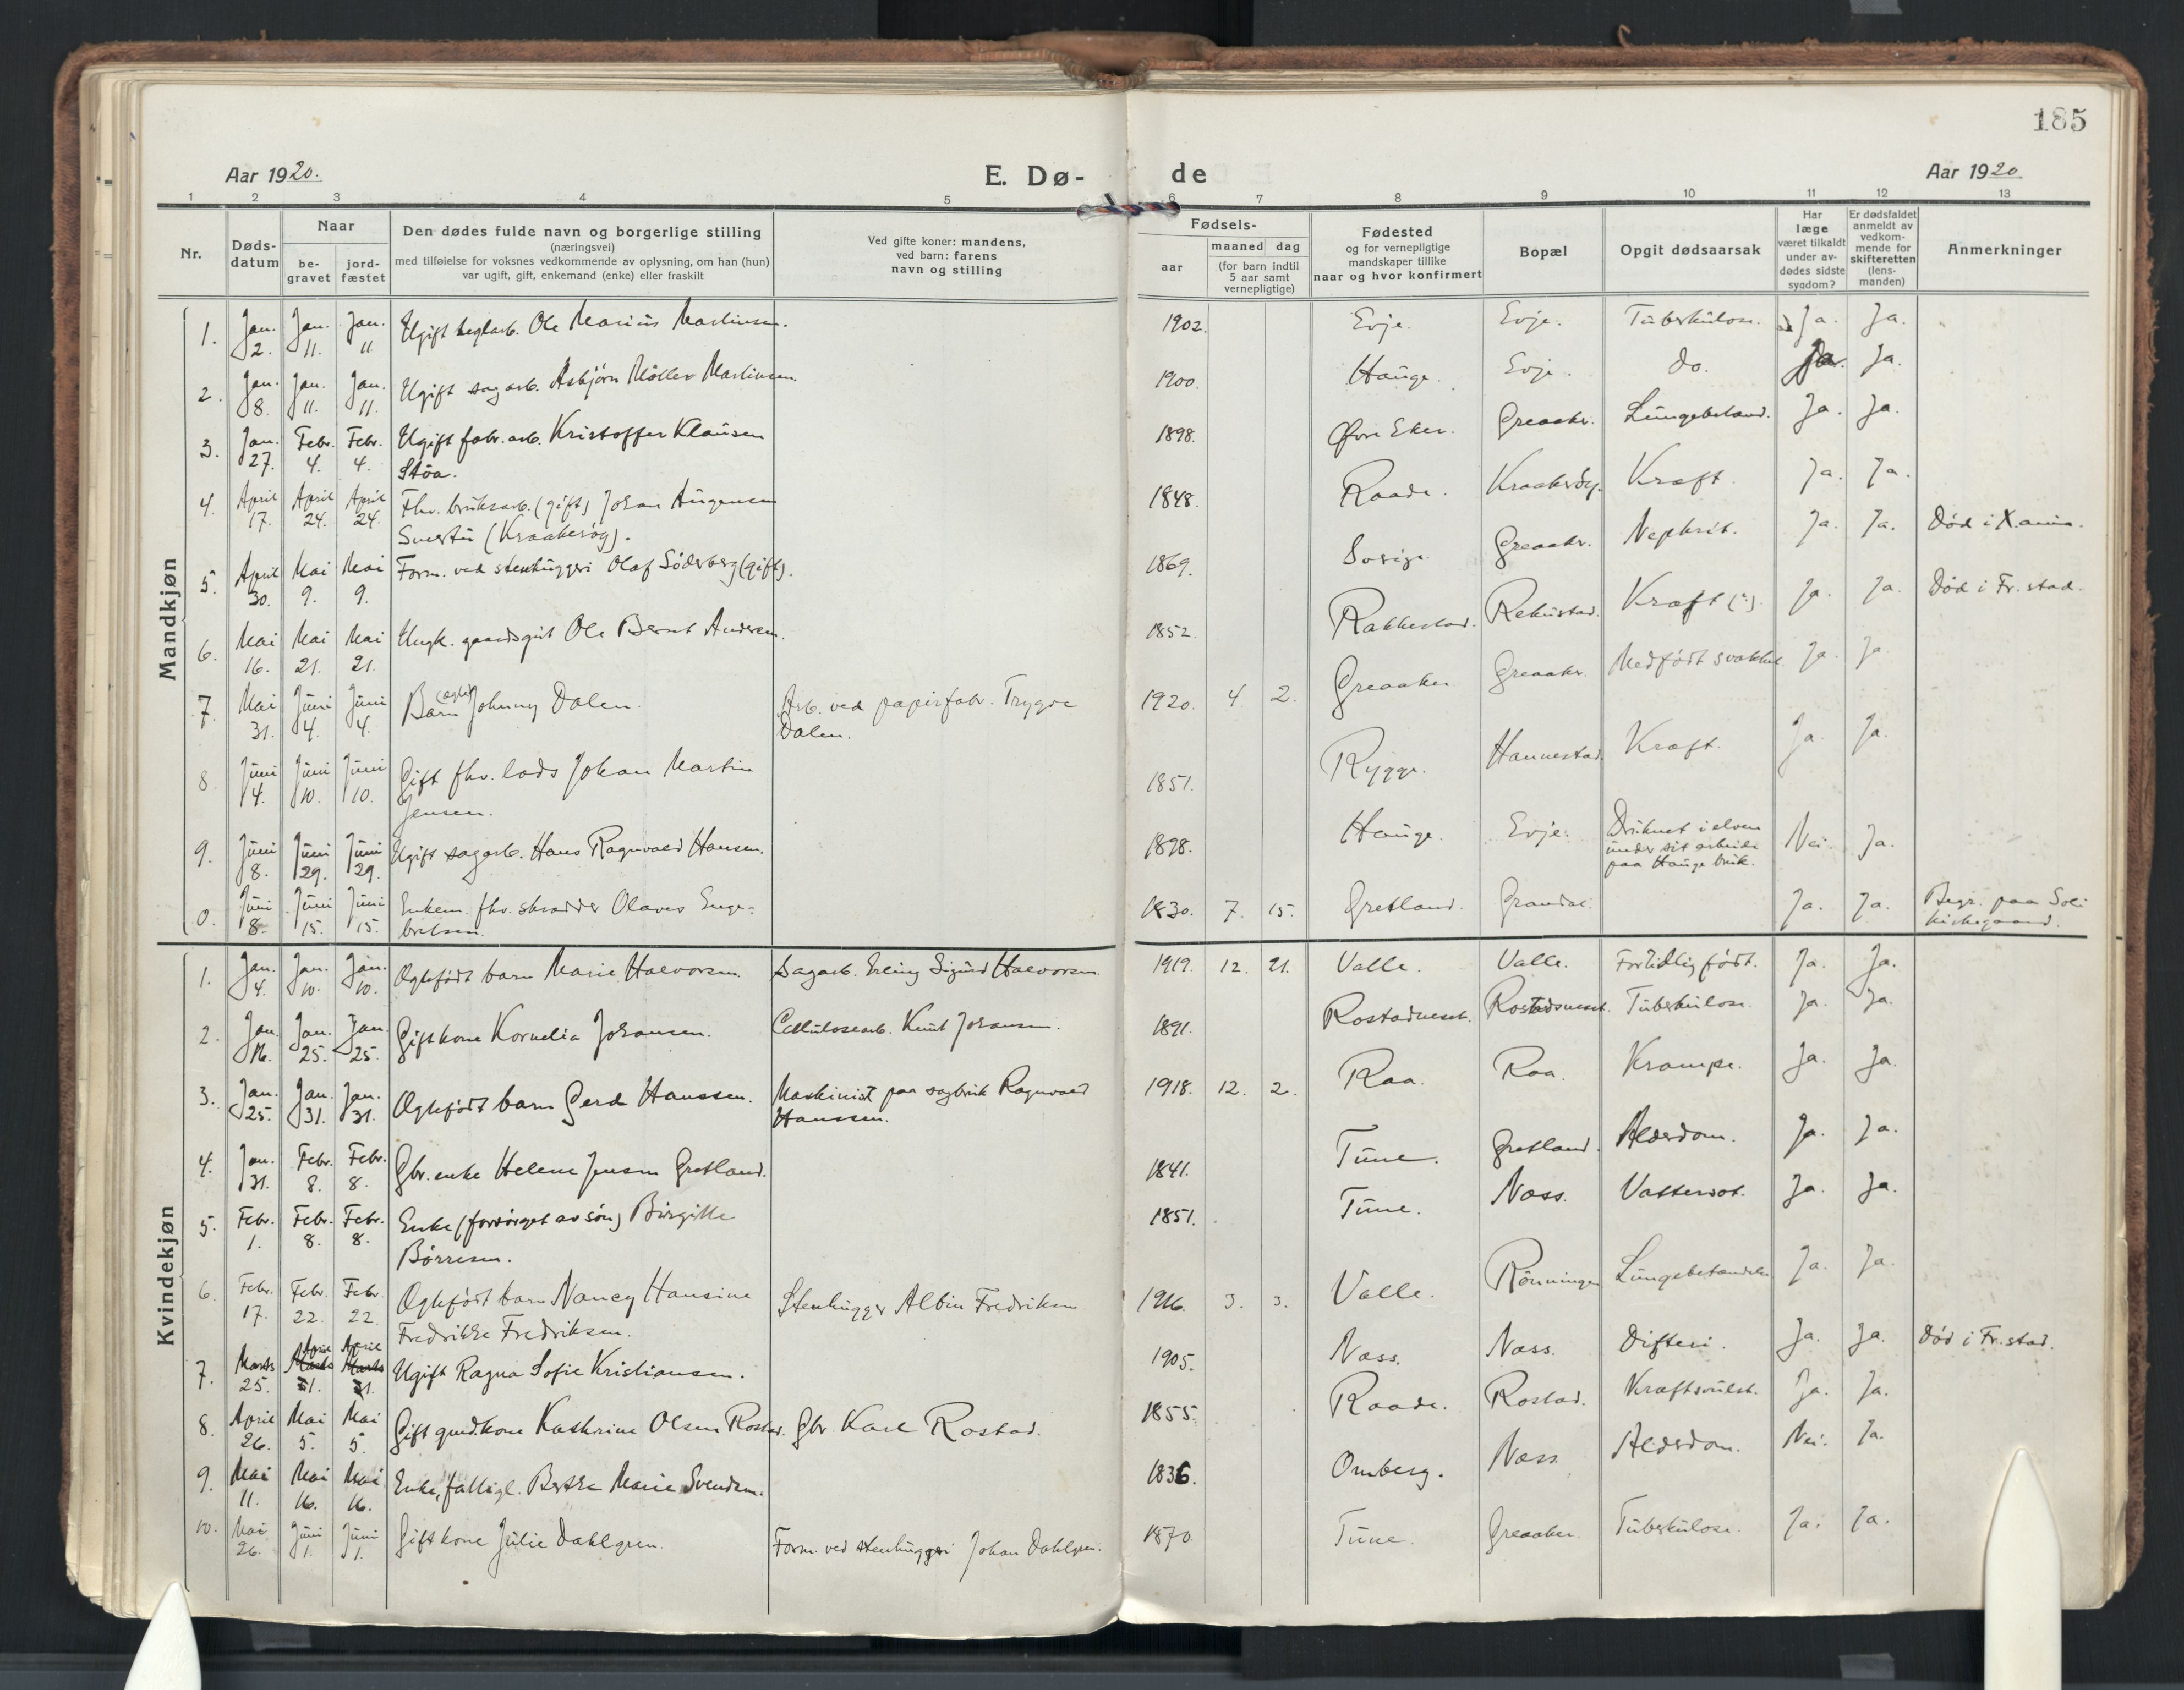 185
Aar 1920. E. Dø- de Aar 1920
1 2 3 4 5 6 7 8 9 10 11 12 13
Nr.
Døds-
datum
Naar
be-
gravet
jord-
fæstet
Den dødes fulde navn og borgerlige stilling
(næringsvei)
med tilføielse for voksnes vedkommende av oplysning, om han (hun)
var ugift, gift, enkemand (enke) eller fraskilt
Ved gifte koner: mandens,
ved barn: farens
navn og stilling
Fødsels-
aar
maaned dag
(for barn indtil
5 aar samt
vernepligtige)
Fødested
og for vernepligtige
mandskaper tillike
naar og hvor konfirmert
Bopæl
Opgit dødsaarsak
Har
læge
været tilkaldt
under av-
dødes sidste
sygdom?
Er dødsfaldet
anmeldt av
vedkom-
mende for
skifteretten
(lens-
manden)
Anmerkninger
Mandkjøn
1. Jan. 2. Jan. 11. Jan. 11 Ugift teglarb. Ole Marius Martinsen. 1902. Evje. Evje. Tuberkulose. Ja. Ja.
2. Jan. 8. Jan. 11. Jan. 11. Ugift sagarb. Asbjørn Møller Martinsen. 1900. Hauge. Evje. do. Ja. Ja.
3. Jan. 27. Febr. 4. Febr. 4. Ugift fabr. arb. Kristoffer Klausen 1898. Øvre Eker. Greaaker. Lungebetænd. Ja. Ja.
Støa.
4. April 17. April 24. April 24. Fhv. bruksarb. (gift) Johan Jürgensen 1848. Raade. Kraakerøy. Kræft. Ja. Ja.
(Kraakerøy).
5. April 30. Mai 9. Mai 9. Form. ved stenhuggeri Olaf Søderberg (gift). 1869. Sverige. Greaaker. Nephrit. Ja. Ja. Død i X.ania.
6. Mai 16. Mai 21. Mai 21. Ungk. gaardsgut Ole Bernt Andersen. 1852. Rakkestad. Rekustad. Kræft (?). Ja. Ja. Død i Fr.stad.
7. Mai 31. Juni 4. Juni 4. Barn (ægtef.) Johnny Dalen. Arb. ved papirfabr. Trygve 1920. 4 2. Greaaker Greaaker. Medfødt svakhet Ja. Ja.
Dalen.
8. Juni 4. Juni 10. Juni 10. Gift fhv. lods Johan Martin 1851. Rygge. Hannestad. Kræft. Ja. Ja.
Jensen.
9. Juni 8. Juni 29. Juni 29. Ugift sagarb. Hans Ragnvald Hansen. 1898. Hauge. Evje. Druknet i elven Nei. Ja.
under sit arbeide
paa Hauge bruk.
0. Juni 8. Juni 15. Juni 15. Enkem. fhv. skrædder Olaves Enge- 1830. 7. 15. Gretland. Grandal. Ja. Ja. Begr. paa Soli
bretsen. kirkegaard.
Kvindekjøn
1. Jan. 4. Jan. 10. Jan. 10. Ægtefødt barn Marie Halvorsen. Sagarb. Erling Sigurd Halvorsen 1919. 12. 21. Valle. Valle. Fortidlig født. Ja. Ja.
2. Jan. 16. Jan. 25. Jan. 25. Gift kone Kornelia Johansen. Cellulosearb. Knut Johansen. 1891. Rostadneset. Rostadneset. Tuberkulose. Ja. Ja.
3. Jan. 25. Jan. 31. Jan. 31. Ægtefødt barn Gerd Hanssen. Maskinist paa sagbruk Ragnvald 1918. 12. 2. Raa. Raa. Krampe. Ja. Ja.
Hanssen.
4. Jan. 31. Febr. 8. Febr. 8. Gbr. enke Helene Jensen Gretland. 1841. Tune. Gretland. Alderdom. Ja. Ja.
5. Febr. 1. Febr. 8. Febr. 8. Enke (forsørget av søn) Birgitte 1851. Tune. Næss. Vattersot. Ja. Ja.
Børresen.
6. Febr. 17. Febr. 22. Febr. 22. Ægtefødt barn Nancy Hansine Stenhugger Albin Fredriksen 1916. 3. 3. Valle. Rønningen Lungebetændelse Ja. Ja.
Fredrikke Fredriksen.
7. Marts 25. April Marts 1. April Marts 1. Ugift Ragna Sofie Kristiansen. 1905. Næss. Næss. Difteri. Ja. Ja. Død i Fr.stad.
8. April 26. Mai 5. Mai 5. Gift grdkone Kathrine Olsen Rostad. Gbr. Karl Rostad. 1855. Raade. Rostad. Kræftsvulst. Ja. Ja.
9. Mai 11. Mai 16. Mai 16. Enke, fattigl. Berthe Marie Svendsen. 1836. Omberg. Næss. Alderdom. Nei. Ja.
10. Mai 26. Juni 1. Juni 1. Gift kone Julie Dahlgren. Form. ved stenhuggeri Johan Dahlgren. 1870. Tune. Greaaker. Tuberkulose. Ja. Ja.